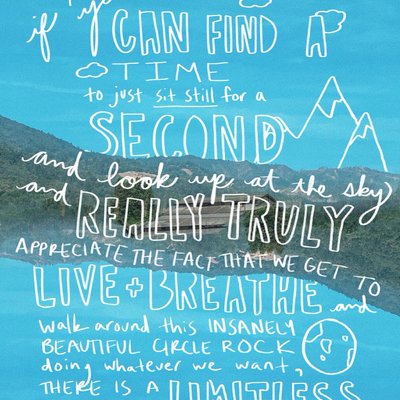 if you
CAN FIND A
TIME
to just sit still for a
SECOND
and look up at the sky
and REALLY TRULY
APPRECIATE THE FACT THAT WE GET TO
LIVE + BREATHE and
walk around this INSANELY
BEAUTIFUL CIRCLE ROCK
doing whatever we want,
THERE IS A LIMITLESS